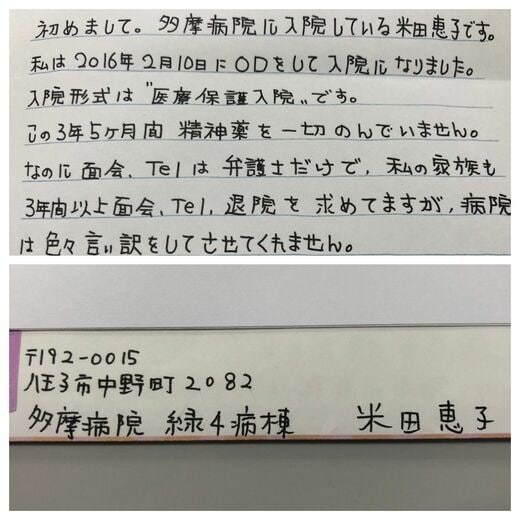 初めまして。多摩病院に入院している米田恵子です。
私は2016年2月10日にODをして入院になりました。
入院形式は"医療保護入院"です。
この3年5ヶ月間 精神薬を一切のんでいません。
なのに面会、Telは弁護士だけで、私の家族も
3年間以上面会、Tel、退院を求めてますが、病院
は色々言い訳をしてさせてくれません。
〒192-0015
八王子市中野町2082
多摩病院 緑4病棟 米田恵子